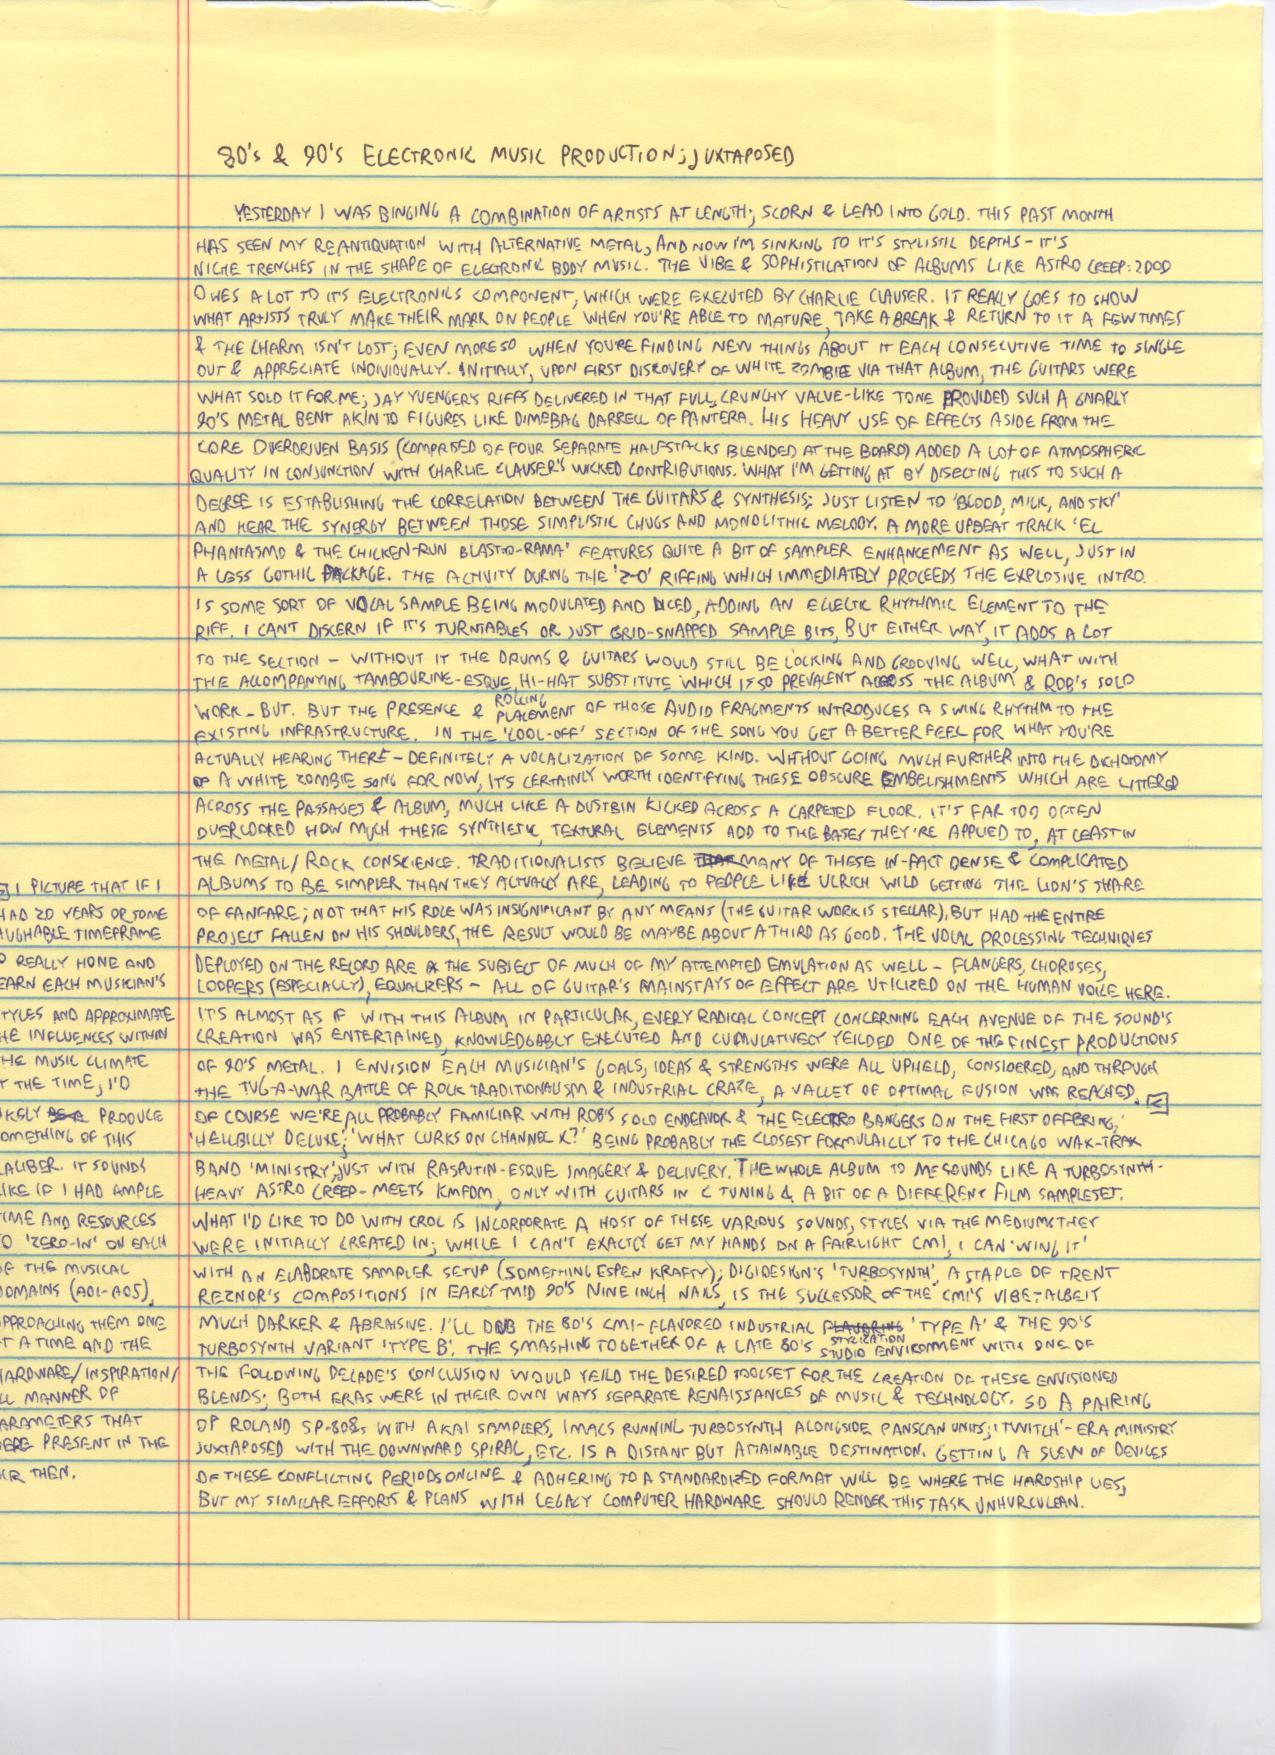 80's & 90's ELECTRONIC MUSIC PRODUCTION; JUXTAPOSED
YESTERDAY I WAS BINGING A COMBINATION OF ARTISTS AT LENGTH; SCORN & LEAD INTO GOLD. THIS PAST MONTH
HAS SEEN MY REANTIQUATION WITH ALTERNATIVE METAL, AND NOW I'M SINKING TO IT'S STYLISTIC DEPTHS - IT'S
NICHE TRENCHES IN THE SHAPE OF ELECTRONIC BODY MUSIC. THE VIBE & SOPHISTICATION OF ALBUMS LIKE ASTRO CREEP: 2000
OWES A LOT TO ITS ELECTRONICS COMPONENT, WHICH WERE EXECUTED BY CHARLIE CLAUSER. IT REALLY GOES TO SHOW
WHAT ARTISTS TRULY MAKE THEIR MARK ON PEOPLE WHEN YOU'RE ABLE TO MATURE, TAKE A BREAK & RETURN TO IT A FEW TIMES
& THE CHARM ISN'T LOST; EVEN MORE SO WHEN YOU'RE FINDING NEW THINGS ABOUT IT EACH CONSECUTIVE TIME TO SINGLE
OUT & APPRECIATE INDIVIDUALLY. INITIALLY, UPON FIRST DISCOVERY OF WHITE ZOMBIE VIA THAT ALBUM, THE GUITARS WERE
WHAT SOLD IT FOR ME; JAY YUENGER'S RIFFS DELIVERED IN THAT FULL, CRUNCHY VALVE-LIKE TONE PROVIDED SUCH A GNARLY
90'S METAL BENT AKIN TO FIGURES LIKE DIMEBAG DARRELL OF PANTERA. HIS HEAVY USE OF EFFECTS ASIDE FROM THE
CORE OVERDRIVEN BASIS (COMPRISED OF FOUR SEPARATE HALFSTACKS BLENDED AT THE BOARD) ADDED A LOT OF ATMOSPHERIC
QUALITY IN CONJUNCTION WITH CHARLIE CLAUSER'S WICKED CONTRIBUTIONS. WHAT I'M GETTING AT BY DISECTING THIS TO SUCH A
DEGREE IS ESTABLISHING THE CORRELATION BETWEEN THE GUITARS & SYNTHESIS; JUST LISTEN TO 'BLOOD, MILK, AND SKY'
AND HEAR THE SYNERGY BETWEEN THOSE SIMPLISTIC CHUGS AND MONOLITHIC MELODY. A MORE UPBEAT TRACK 'EL
PHANTASMO & THE CHICKEN-RUN BLAST-O-RAMA' FEATURES QUITE A BIT OF SAMPLER ENHANCEMENT AS WELL, JUST IN
A LESS GOTHIC PACKAGE. THE ACTIVITY DURING THE '2-0' RIFFING WHICH IMMEDIATELY PROCEEDS THE EXPLOSIVE INTRO
IS SOME SORT OF VOCAL SAMPLE BEING MODULATED AND DICED, ADDING AN ECLECTIC RHYTHMIC ELEMENT TO THE
RIFF. I CAN'T DISCERN IF IT'S TURNTABLES OR JUST GRID-SNAPPED SAMPLE BITS, BUT EITHER WAY, IT ADDS A LOT
TO THE SECTION - WITHOUT IT THE DRUMS & GUITARS WOULD STILL BE LOCKING AND GROOVING WELL, WHAT WITH
THE ACCOMPANYING TAMBOURINE-ESQUE, HI-HAT SUBSTITUTE WHICH IS SO PREVALENT ACROSS THE ALBUM & ROB'S SOLO
WORK - BUT. BUT THE PRESENCE & ROLLING PLACEMENT OF THOSE AUDIO FRAGMENTS INTRODUCES A SWING RHYTHM TO THE
EXISTING INFRASTRUCTURE. IN THE 'COOL-OFF' SECTION OF THE SONG YOU GET A BETTER FEEL FOR WHAT YOU'RE
ACTUALLY HEARING THERE - DEFINITELY A VOCALIZATION OF SOME KIND. WITHOUT GOING MUCH FURTHER INTO THE DICHOTOMY
OF A WHITE ZOMBIE SONG FOR NOW, IT'S CERTAINLY WORTH IDENTIFYING THESE OBSCURE EMBELISHMENTS WHICH ARE LITTERED
ACROSS THE PASSAGES & ALBUM, MUCH LIKE A DUSTBIN KICKED ACROSS A CARPETED FLOOR. IT'S FAR TOO OFTEN
OVERLOOKED HOW MUCH THESE SYNTHETIC, TEXTURAL ELEMENTS ADD TO THE BASES THEY'RE APPLIED TO, AT LEAST IN
THE METAL/ROCK CONSCIENCE. TRADITIONALISTS BELIEVE MANY OF THESE IN-FACT DENSE & COMPLICATED
ALBUMS TO BE SIMPLER THAN THEY ACTUALLY ARE, LEADING TO PEOPLE LIKE ULRICH WILD GETTING THE LION'S SHARE
OF FANFARE; NOT THAT HIS ROLE WAS INSIGNIFICANT BY ANY MEANS (THE GUITAR WORK IS STELLAR), BUT HAD THE ENTIRE
PROJECT FALLEN ON HIS SHOULDERS, THE RESULT WOULD BE MAYBE ABOUT A THIRD AS GOOD. THE VOCAL PROCESSING TECHNIQUES
DEPLOYED ON THE RECORD ARE THE SUBJECT OF MUCH OF MY ATTEMPTED EMULATION AS WELL - FLANGERS, CHORUSES,
LOOPERS (ESPECIALLY), EQUALIZERS - ALL OF GUITAR'S MAINSTAYS OF EFFECT ARE UTILIZED ON THE HUMAN VOICE HERE.
IT'S ALMOST AS IF WITH THIS ALBUM IN PARTICULAR, EVERY RADICAL CONCEPT CONCERNING EACH AVENUE OF THE SOUND'S
CREATION WAS ENTERTAINED, KNOWLEDGABLY EXECUTED AND CUMULATIVELY YEILDED ONE OF THE FINEST PRODUCTIONS
OF 90'S METAL. I ENVISION EACH MUSICIAN'S GOALS, IDEAS & STRENGTHS WERE ALL UPHELD, CONSIDERED, AND THROUGH
THE TUG-A-WAR BATTLE OF ROCK TRADITIONALISM & INDUSTRIAL CRAZE, A VALLEY OF OPTIMAL FUSION WAS REACHED. [<]
OF COURSE WE'RE ALL PROBABLY FAMILIAR WITH ROB'S SOLO ENDEAVOR & THE ELECTRO BANGERS ON THE FIRST OFFERING,
'HELLBILLY DELUXE'; 'WHAT LURKS ON CHANNEL X?' BEING PROBABLY THE CLOSEST FORMULAICLLY TO THE CHICAGO WAX-TRAX
BAND 'MINISTRY', JUST WITH RASPUTIN-ESQUE IMAGERY & DELIVERY. THE WHOLE ALBUM TO ME SOUNDS LIKE A TURBOSYNTH-
HEAVY ASTRO CREEP-MEETS KMFDM, ONLY WITH GUITARS IN C TUNING & A BIT OF A DIFFERENT FILM SAMPLESET.
WHAT I'D LIKE TO DO WITH CROC IS INCORPORATE A HOST OF THESE VARIOUS SOUNDS, STYLES VIA THE MEDIUMS THEY
WERE INITIALLY CREATED IN; WHILE I CAN'T EXACTLY GET MY HANDS ON A FAIRLIGHT CMI, I CAN 'WING IT'
WITH AN ELABORATE SAMPLER SETUP (SOMETHING ESPEN KRAFTY); DIGIDESIGN'S 'TURBOSYNTH', A STAPLE OF TRENT
REZNOR'S COMPOSITIONS IN EARLY MID 90'S NINE INCH NAILS, IS THE SUCCESSOR OF THE CMI'S VIBE - ALBEIT
MUCH DARKER & ABRAISIVE. I'LL DUB THE 80'S CMI-FLAVORED INDUSTRIAL FLAVORING 'TYPE A' & THE 90'S
TURBOSYNTH VARIANT 'TYPE B'. THE SMASHING TOGETHER OF A LATE 80'S STYLIZATION STUDIO ENVIRONMENT WITH ONE OF
THE FOLLOWING DECADE'S CONCLUSION WOULD YEILD THE DESIRED TOOLSET FOR THE CREATION OF THESE ENVISIONED
BLENDS; BOTH ERAS WERE IN THEIR OWN WAYS SEPARATE RENAISSANCES OF MUSIC & TECHNOLOGY. SO A PAIRING
OF ROLAND SP-808s WITH AKAI SAMPLERS, IMACS RUNNING TURBOSYNTH ALONGSIDE PANSCAN UNITS; 'TWITCH'-ERA MINISTRY
JUXTAPOSED WITH THE DOWNWARD SPIRAL, ETC. IS A DISTANT BUT ATTAINABLE DESTINATION. GETTING A SLEW OF DEVICES
OF THESE CONFLICTING PERIODS ONLINE & ADHERING TO A STANDARDIZED FORMAT WILL BE WHERE THE HARDSHIP LIES,
BUT MY SIMILAR EFFORTS & PLANS WITH LEGACY COMPUTER HARDWARE SHOULD RENDER THIS TASK UNHURCULEAN.
I PICTURE THAT IF I
HAD 20 YEARS OR SOME
AUGHABLE TIMEFRAME
O REALLY HONE AND
EARN EACH MUSICIAN'S
TYLES AND APPROXIMATE
HE INFLUENCES WITHIN
THE MUSIC CLIMATE
T THE TIME, I'D
KELY PRODUCE
OMETHING OF THIS
ALIBER. IT SOUNDS
IKE IF I HAD AMPLE
IME AND RESOURCES
O 'ZERO-IN' ON EACH
OF THE MUSICAL
DOMAINS (A01-A05),
APPROACHING THEM ONE
T A TIME AND THE
HARDWARE/INSPIRATION/
LL MANNER OF
ARAMETERS THAT
WERE PRESENT IN THE
IR THEN.